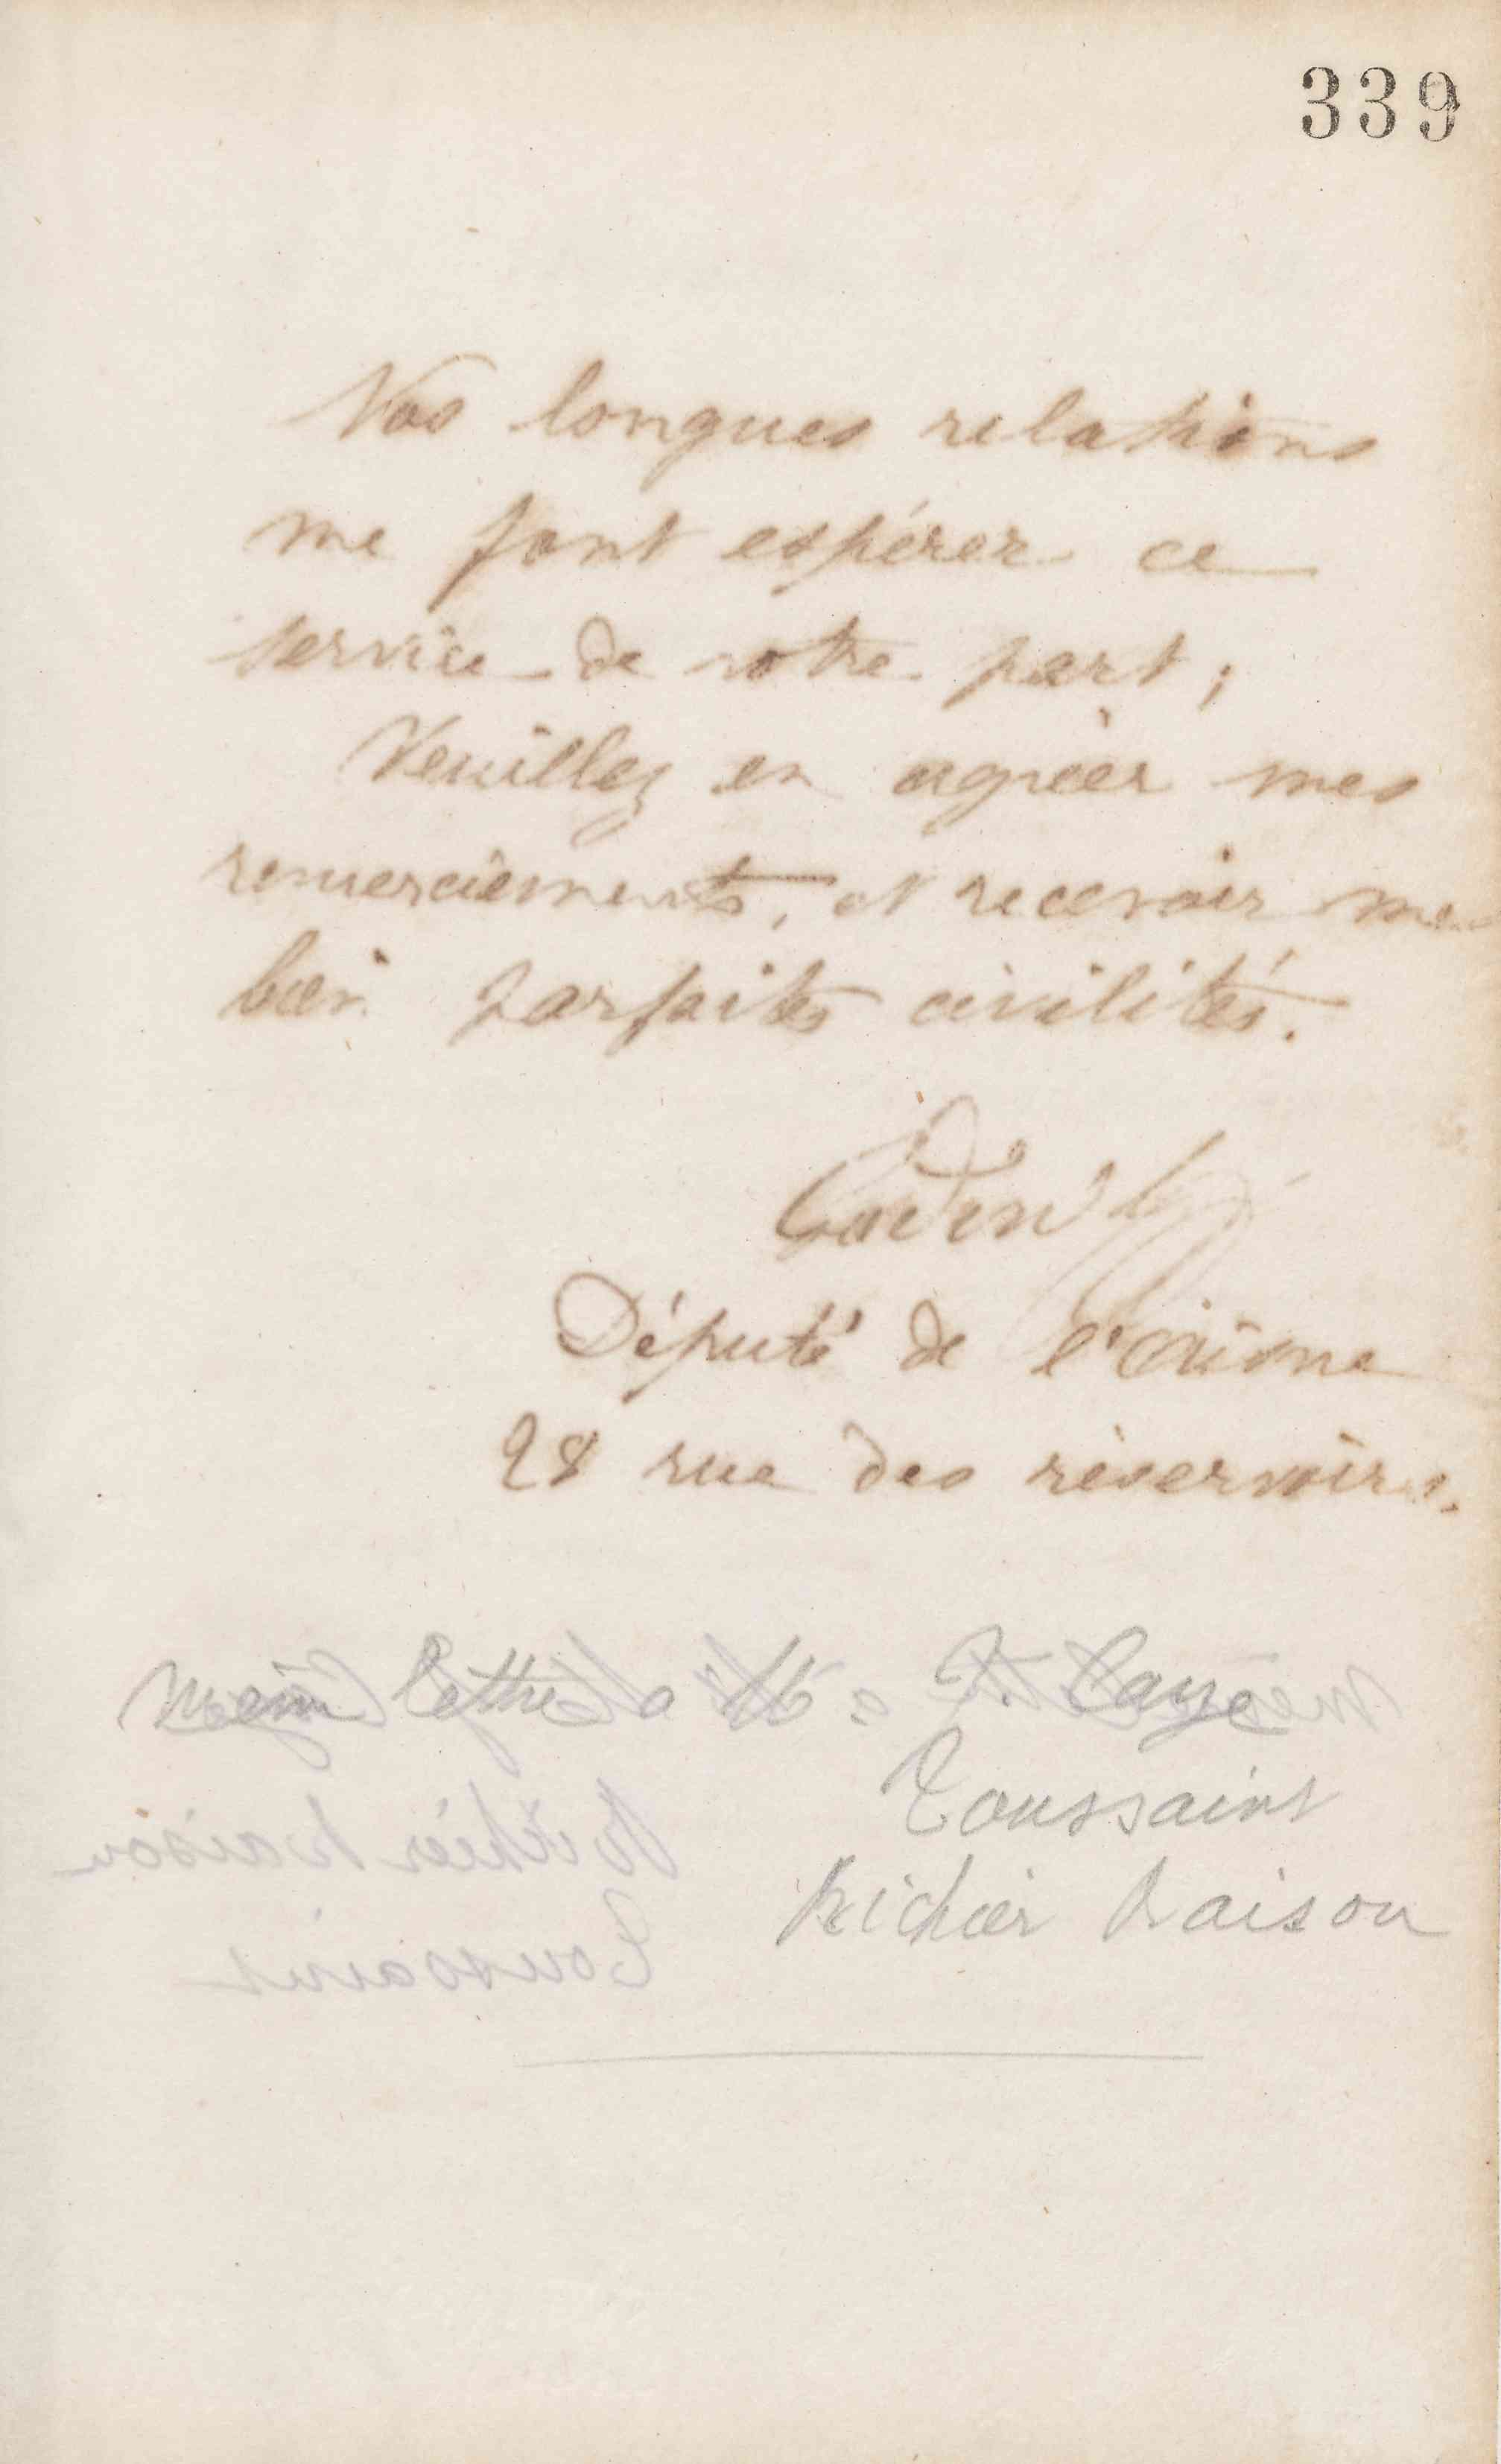 339
Nos longues relations
me font espérer ce
service de votre part;
Veuillez en agréer mes
remerciements, et recevoir mes
bien parfaites civilités.
Godin
Député de l'Aisne
28 rue des réservoirs.
Meme lettre a M
Toussaint
Richier Raison